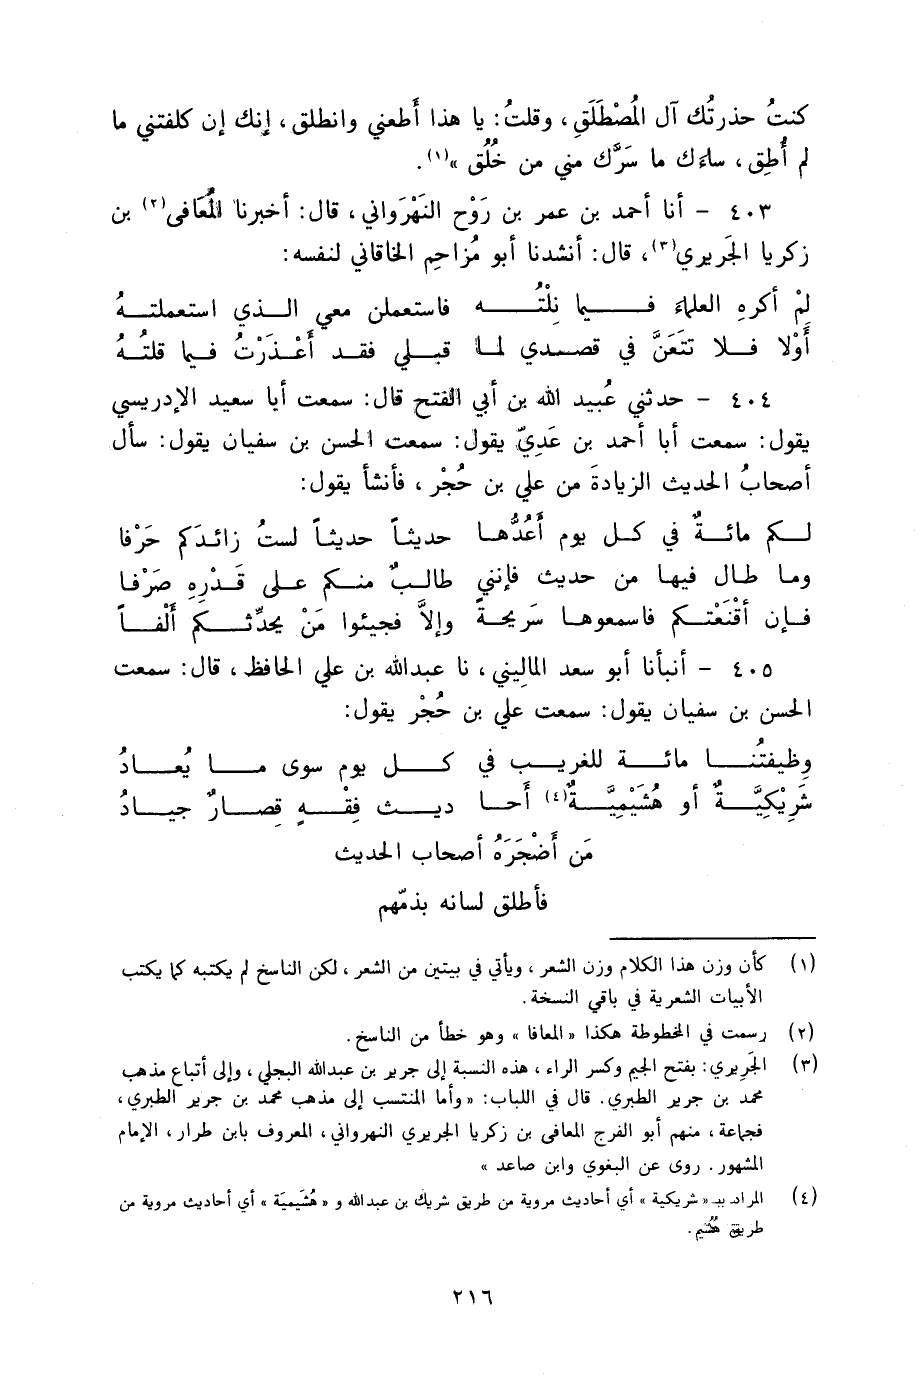 كنتُ حذرتُك آل المُصْطَلَقِ، وقلتُ: يا هذا أَطعني وانطلق، إنك إن كلفتني ما
لم أُطِق، ساءَك ما سَرَّك مني من خُلُق »(١).
٤٠٣ - أنا أحمد بن عمر بن رَوْح النَهْرَواني، قال: أخبرنا المُعَافى(٢) بن
زكريا الجَريري(٣)، قال: أنشدنا أبو مُزاحِم الخاقاني لنفسه:
لِمْ أكرهِ العلماءَ فـــــيما نِلْتُـــــه فاستعملن معي الـــذي استعملتـــهُ
أَوْلا فـــلا تتعَنَّ في قصـــدي لمـــا قبـــلي فقـــد أَعْـــذَرْتُ فـــيما قلتُـــهُ
٤٠٤ - حدثني عُبيد الله بن أبي الفتح قال: سمعت أبا سعيد الإدريسي
يقول: سمعت أبا أحمد بن عَدِيّ يقول: سمعت الحسن بن سفيان يقول: سأل
أصحابُ الحديث الزيادةَ من علي بن حُجْر، فأنشأ يقول:
لـــكم مائـــةٌ في كـــل يوم أَعُدُّهـــا حديثـــاً حديثـــاً لستُ زائدَكم حَرْفا
وما طـــال فيهـــا من حديث فإنني طالـــبٌ منـــكم عـــلى قَـــدْرِهِ صَرْفـــا
فـــإن أقْنَعَتْـــكم فاسمعوهـــا سَريحـــةً وإلاَّ فجيئوا مَنْ يحدِّثـــكم أَلْفـــاً
٤٠٥ - أنبأنا أبو سعد الماليني، نا عبدالله بن علي الحافظ، قال: سمعت
الحسن بن سفيان يقول: سمعت علي بن حُجْر يقول:
وظيفتُنـــا مائـــة للغريـــب في كـــل يوم سوى مـــا يُعـــادُ
شَرِيْكِيَّـــةٌ أو هُشَيْمِيَّـــةٌ(٤) أَحـــا ديـــث فِقْـــهٍ قصـــارٌ جيـــادُ
مَن أَضْجَرَهُ أصحاب الحديث
فأطلق لسانه بذمّهم
(١) كأن وزن هذا الكلام وزن الشعر، ويأتي في بيتين من الشعر، لكن الناسخ لم يكتبه كما يكتب
الأبيات الشعرية في باقي النسخة.
(٢) رسمت في المخطوطة هكذا «المعافا» وهو خطأ من الناسخ.
(٣) الجَريري: بفتح الجيم وكسر الراء، هذه النسبة إلى جرير بن عبدالله البجلي، وإلى أتباع مذهب
محمد بن جرير الطبري. قال في اللباب: «وأما المنتسب إلى مذهب محمد بن جرير الطبري،
فجماعة، منهم أبو الفرج المعافى بن زكريا الجريري النهرواني، المعروف بابن طرار، الإمام
المشهور. روى عن البغوي وابن صاعد»
(٤) المراد بـ«شريكية» أي أحاديث مروية من طريق شريك بن عبدالله و«هُشَيمِيَة» أي أحاديث مروية من
طريق هُشَيم.
٢١٦